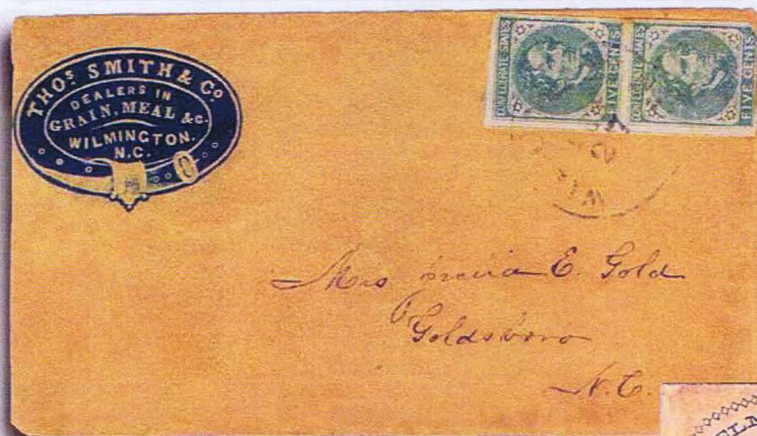 THOS. SMITH & CO
DEALERS IN
GRAIN, MEAL &c.
WILMINGTON.
N.C.
CONFEDERATE STATES
FIVE CENTS
CONFEDERATE STATES
FIVE CENTS
Mrs E. Gold
Goldsboro
N.C.